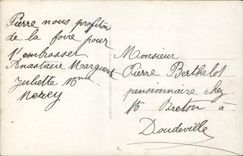 Pierre nous profitons
de la foire pour
t'embrasser
Anastasie Marguerite
Juliette
Mercy
Monsieur
Pierre Berthelot
pensionnaire chez
Mr Breton à
Doudeville